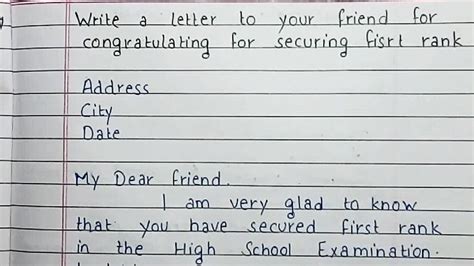 Write a letter to your friend for
congratulating for securing fisrt rank
Address
City
Date
My Dear friend.
I am very glad to know
that you have secured first rank
in the High School Examination.